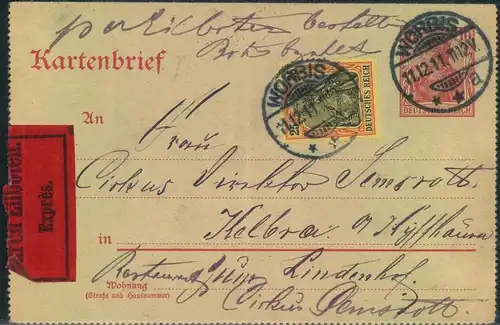 per Eilboten bestellen
Bote bezahlt
Kartenbrief
WORBIS
11.12.11. 11-12V.
a
WORBIS
11.12.11.
DEUTSCHES REICH
25
DEUTSCHES REICH
An
Frau
Cirkus Direktor Semsrott
Durch Eilboten.
Exprès.
in
Kelbra a/Kyffhäuser
Restaurant zum Lindenhof.
Wohnung
(Straße und Hausnummer)
Cirkus Semsrott.